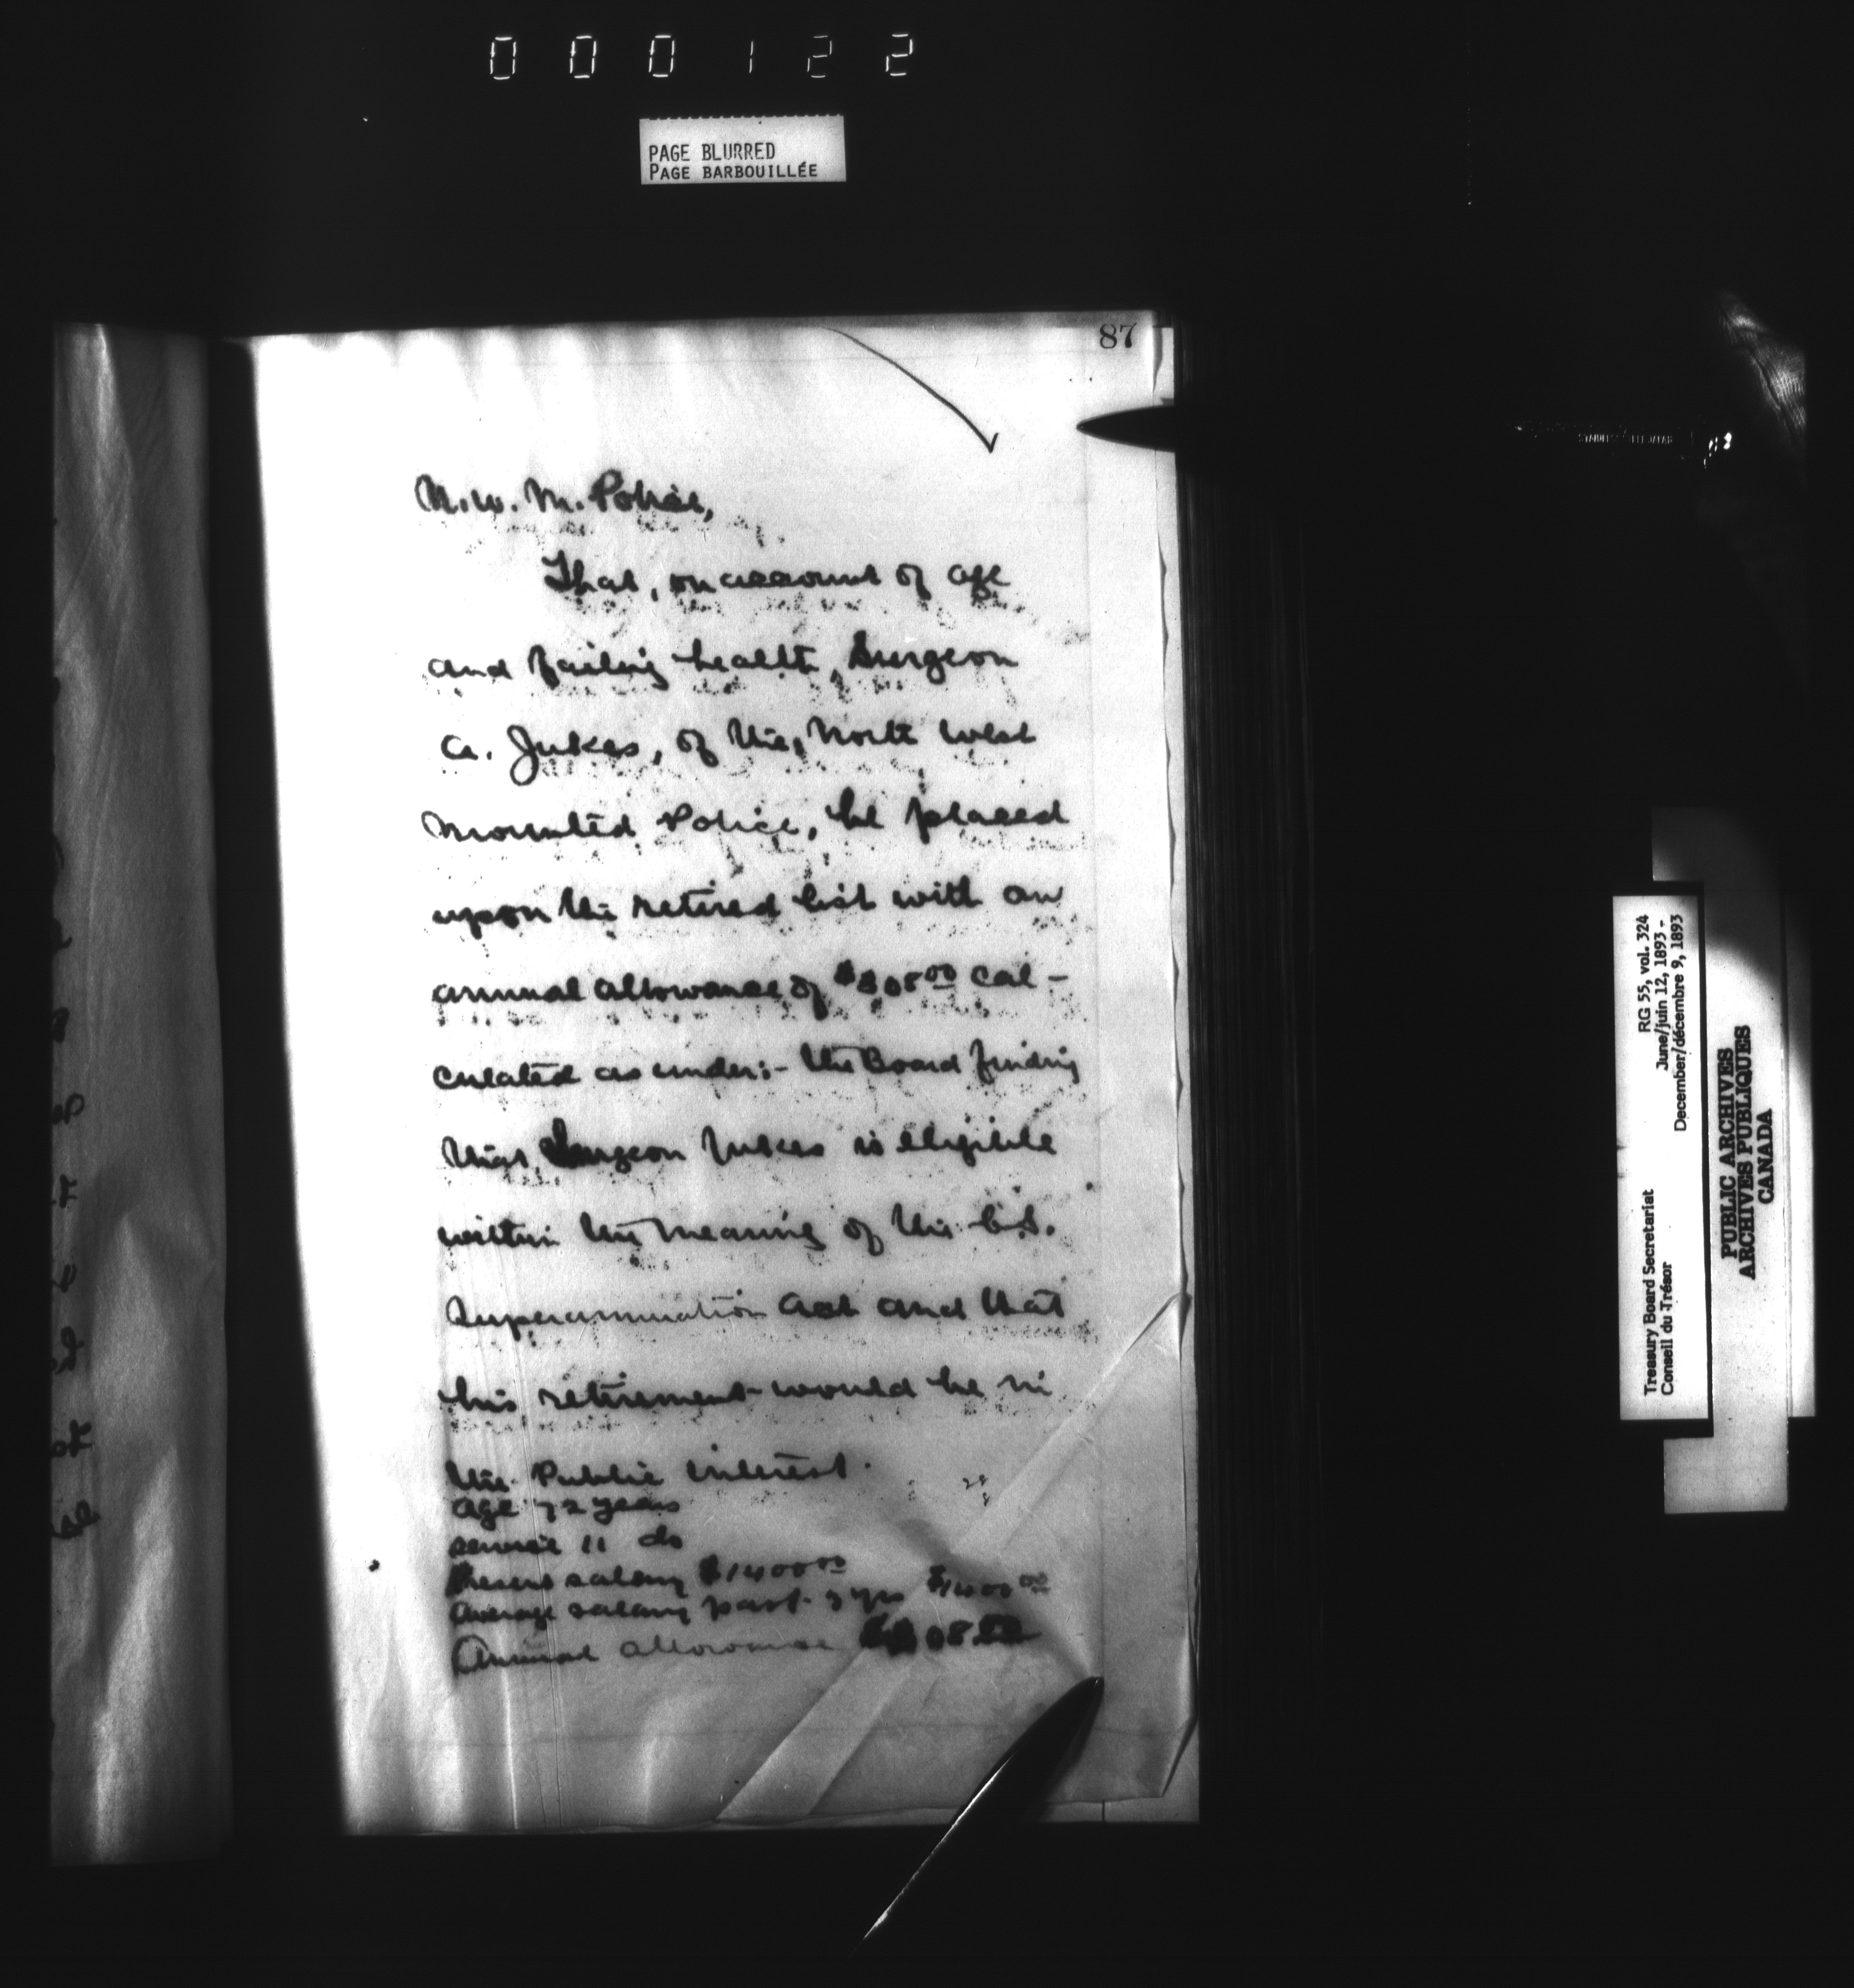 000122
PAGE BLURRED
PAGE BARBOUILLÉE
87
N.W. M. Police,
That, on account of age
and failing health, Surgeon
A. Jukes, of the, North West
Mounted Police, be placed
upon the retired list with an
annual allowance of $308.00 cal-
culated as under:- the Board finding
that, Surgeon Jukes is eligible
within the meaning of the C.S.
Superannuation Act and that
his retirement would be in
the Public interest.
Age 72 years
service 11 do
Present salary $1400.00
Average salary past 3 yrs $1400.00
Annual allowance $308.00
RG 55, vol. 324
June/juin 12, 1893 -
December/décembre 9, 1893
Treasury Board Secretariat
Conseil du Trésor
PUBLIC ARCHIVES
ARCHIVES PUBLIQUES
CANADA